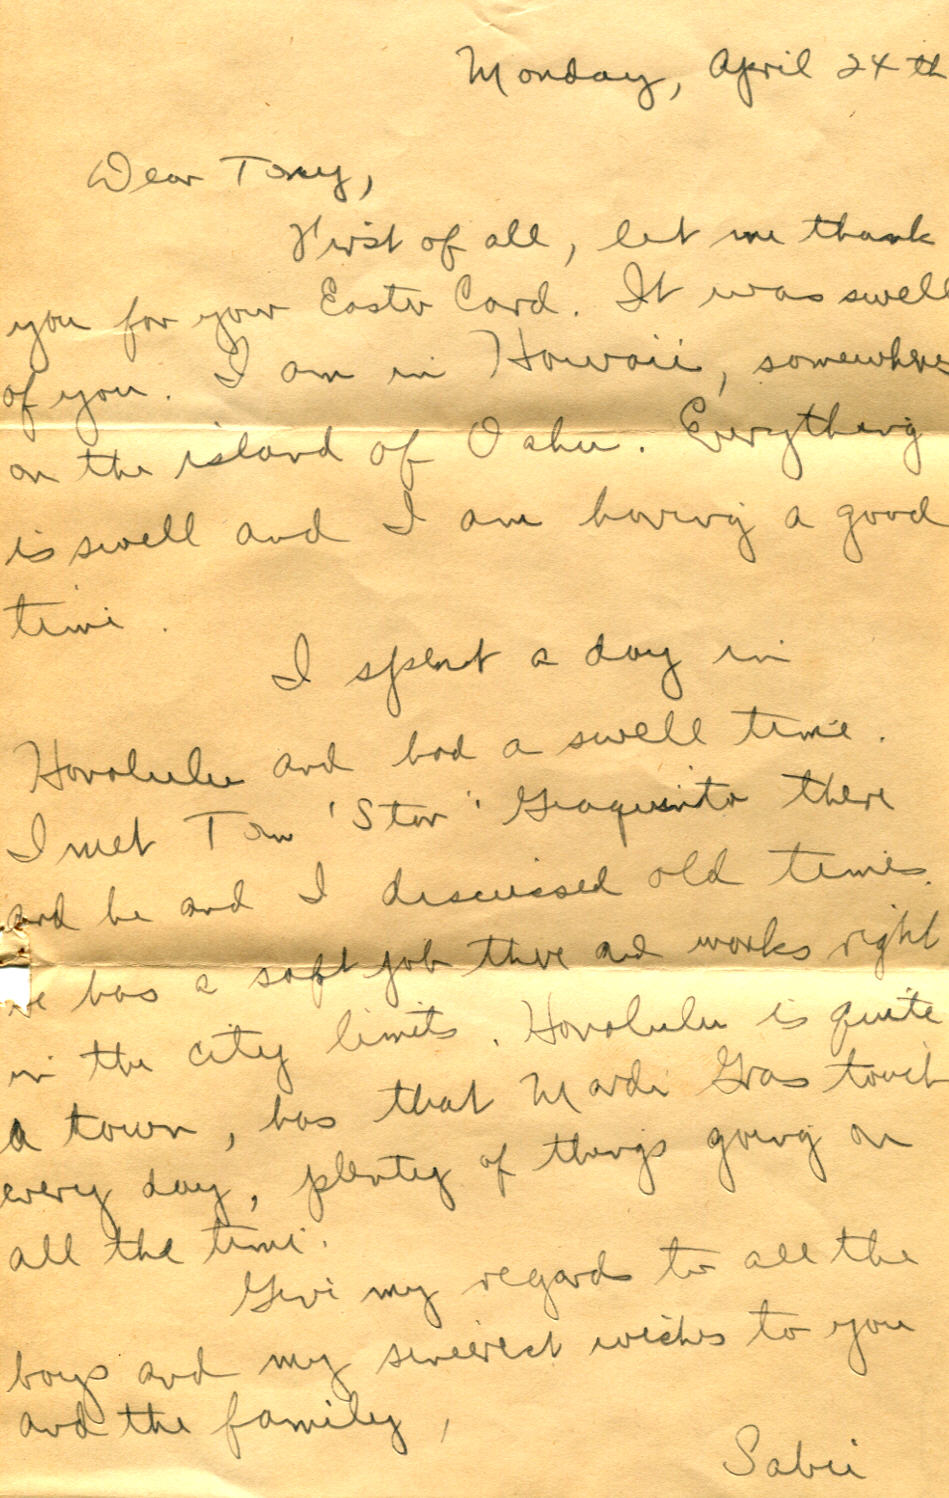 Monday, April 24th
Dear Tony,
First of all, let me thank
you for your Easter Card. It was swell
of you. I am in Hawaii, somewhere
on the island of Oahu. Everything
is swell and I am having a good
time.
I spent a day in
Honolulu and had a swell time.
I met Tom 'Star' Giaquinto there
and he and I discussed old times.
He has a soft job there and works right
in the city limits. Honolulu is quite
a town, has that Mardi Gras touch
every day, plenty of things going on
all the time.
Give my regards to all the
boys and my sincerest wishes to you
and the family,
Sabie